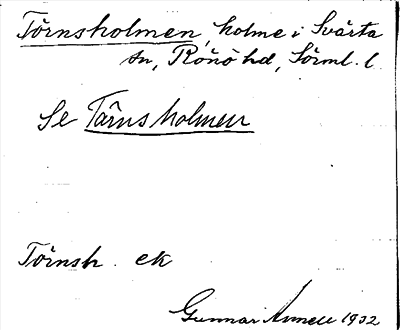 Törnsholmen, holme i Svärta
sn, Rönö hd, Sörml. l.
Se Tärnsholmen
Törnsh. ek
Gunnar 1932